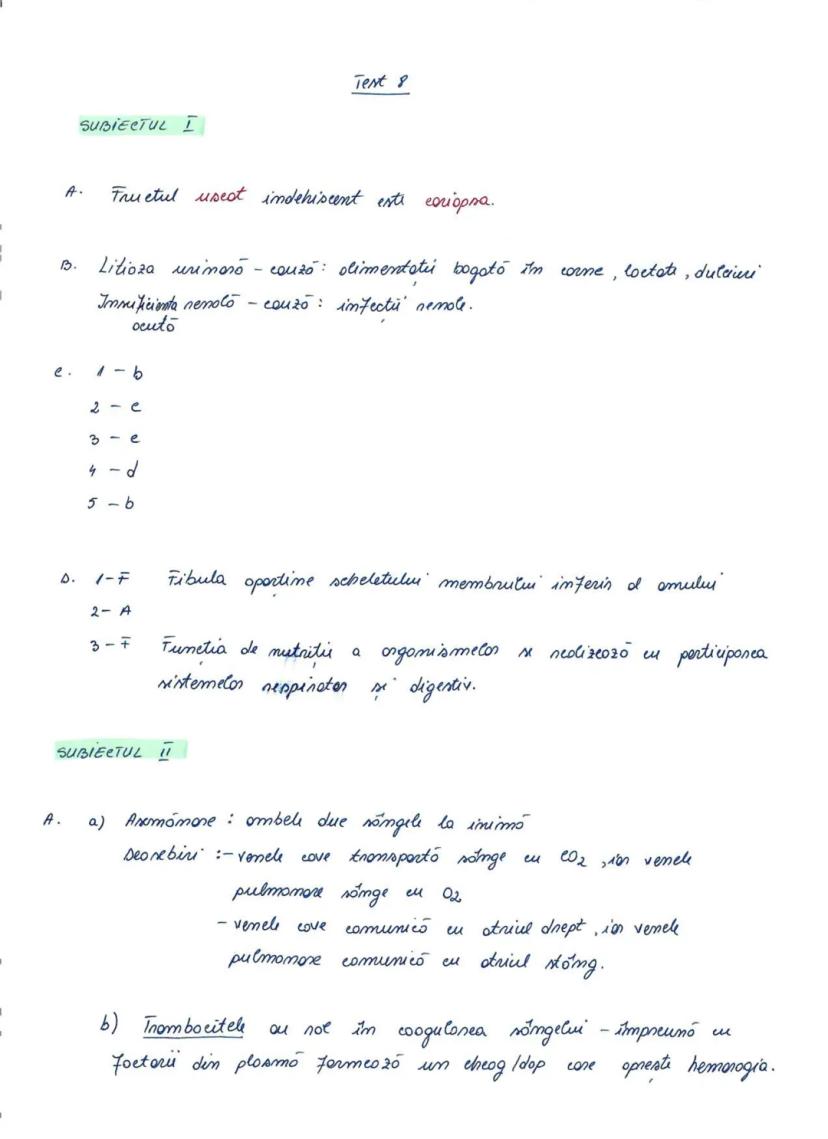 Test 8
SUBIECTUL I
A. Fructul uscat indehiscent este cariopsa.
B. Litiaza urinară - cauză: alimentatii bogată în carne, lactate, dulciuri
Insuficienta renală - cauză: infecții renale.
acută
C. 1 - b
2 - c
3 - c
4 - d
5 - b
D. 1-F Fibula aparține scheletului membrului inferior al omului
2- A
3-F Funcția de nutriție a organismelor se realizează cu participarea
sistemelor respirator și digestiv.
SUBIECTUL II
A. a) Asemănare: ambele duc sângele la inimă
Deosebiri :- venele cave transportă sânge cu CO2, iar venele
pulmonare sânge cu O2
- venele cave comunică cu atriul drept, iar venele
pulmonare comunică cu atriul stâng.
b) Trombocitele au rol în coagularea sângelui - împreună cu
factorii din plasmă formează un cheag/dop care oprește hemoragia.